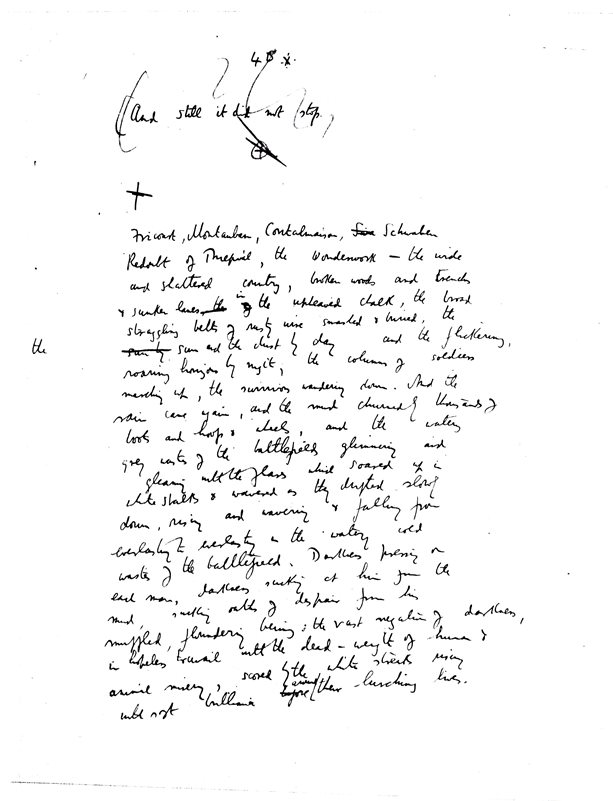 48 x.
(And still it did not stop.)
Fricourt, Montauban, Contalmaison, Schwaben
Redoubt of Thiepval, the Wonderwork — the wide
and shattered country, broken woods and trench
& sunken lanes in the upheaved chalk, the broad
straggling belts of rusty wire smashed & buried, the
sun and the dust by day and the flickering,
the
roaring horizons by night, the columns of soldiers
marching up, the survivors wandering down. And the
rain came again, and the mud churned by thousands of
boots and hoofs & wheels, and the watery
grey wastes of the battlefields glimmering and
gleaming with the flares which soared up in
white stalks & wavered as they drifted slowly
down, rising and wavering & falling from
everlasting to everlasting in the watery cold
wastes of the battlefield. Darkness pressing on
each man, darkness sucking at him from the
mud, sucking oaths of despair from his
muffled, floundering being; the vast negation of darkness,
in hopeless travail with the dead-weight of human &
animal misery, scored by the white streaks rising
with brilliance around their lurching lives.